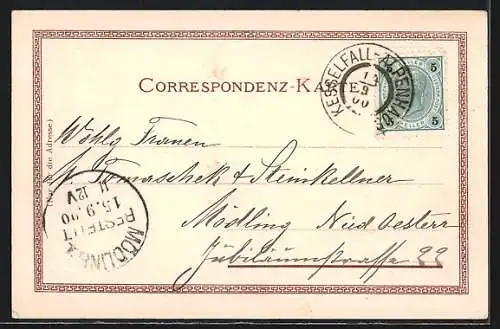 CORRESPONDENZ-KARTE
KESSELFALL-ALPENHAUS
13
9
00
5 5
HELLER
(Nur für die Adresse)
Wohlg Frauen
Tomaschek & Steinkellner
Mödling Nied Oesterr
Jubiläumstrasse 22
MÖDLING
BESTELLT
15.9.00
12V